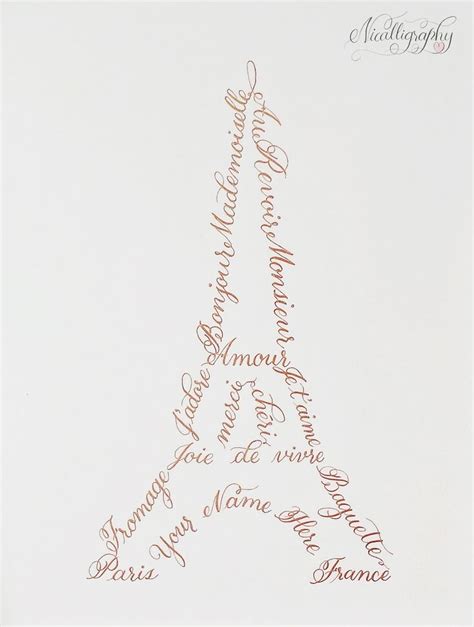 Nicalligraphy
Bonjour Mademoiselle
Au Revoir Monsieur
Amour
J'adore
merci
chéri
Je t'aime
Joie de vivre
Fromage
Your Name Here
Baguette
Paris
France